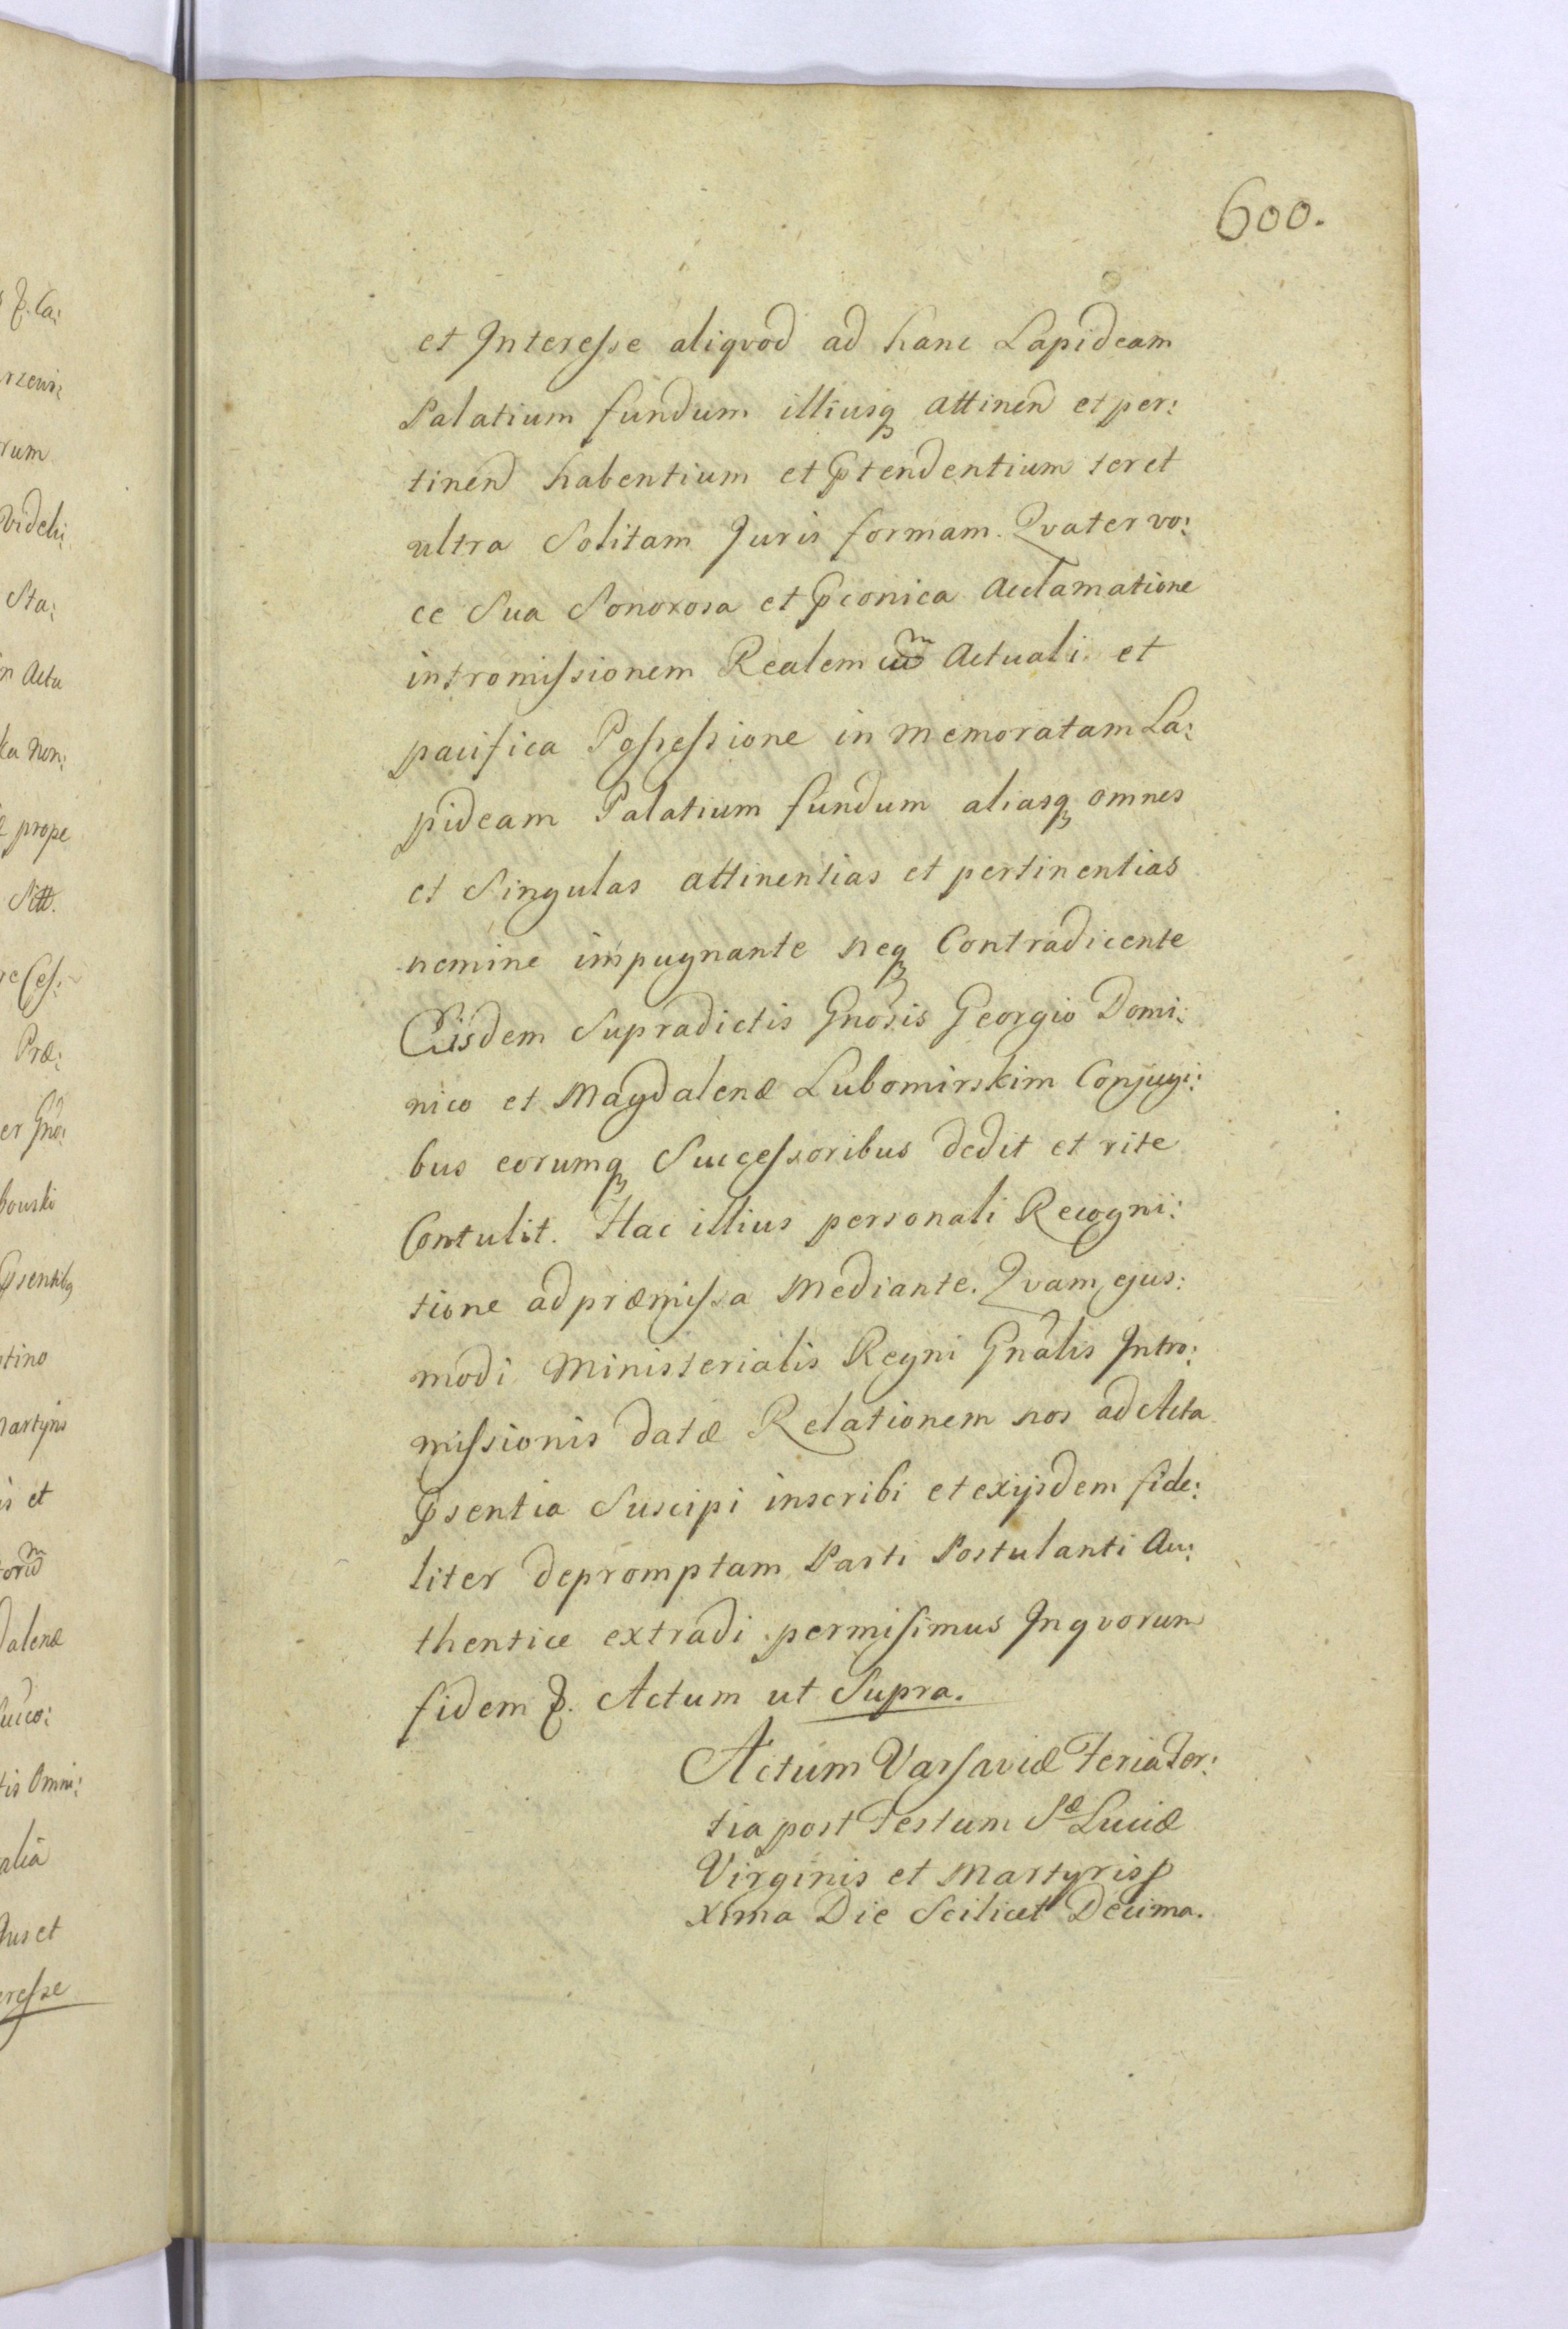 600.
et Interesse aliqvod ad hanc Lapideam
Palatium fundum illiusq attinen et per:
tinen habentium et Ptendentium ter et
ultra Solitam Juris formam. Qvater vo:
ce Sua Sonorosa et Pconica Acclamatione
intromissionem Realem cum Actuali et
pacifica Possessione in memoratam La:
pideam Palatium fundum aliasq omnes
et Singulas attinentias et pertinentias
nemine impugnante neq Contradicente
Eisdem Supradictis Gnosis Georgio Domi:
nico et Magdalenæ Lubomirskim Conjugi:
bus eorumq Successoribus dedit et rite
Contulit. Hac illius personali Recogni:
tione ad præmissa Mediante. Qvam ejus:
modi Ministerialis Regni Gnalis Intro:
missionis datæ Relationem nos ad Acta
Psentia Suscipi inscribi et exijsdem fide:
liter depromptam Parti Postulanti Au:
thentice extradi permisimus Inqvorum
fidem &. Actum ut Supra.
Actum Varsaviæ Feria Ter:
tia post Festum Sæ Luciæ
Virginis et Martyris p
xima Die Scilicet Decima.